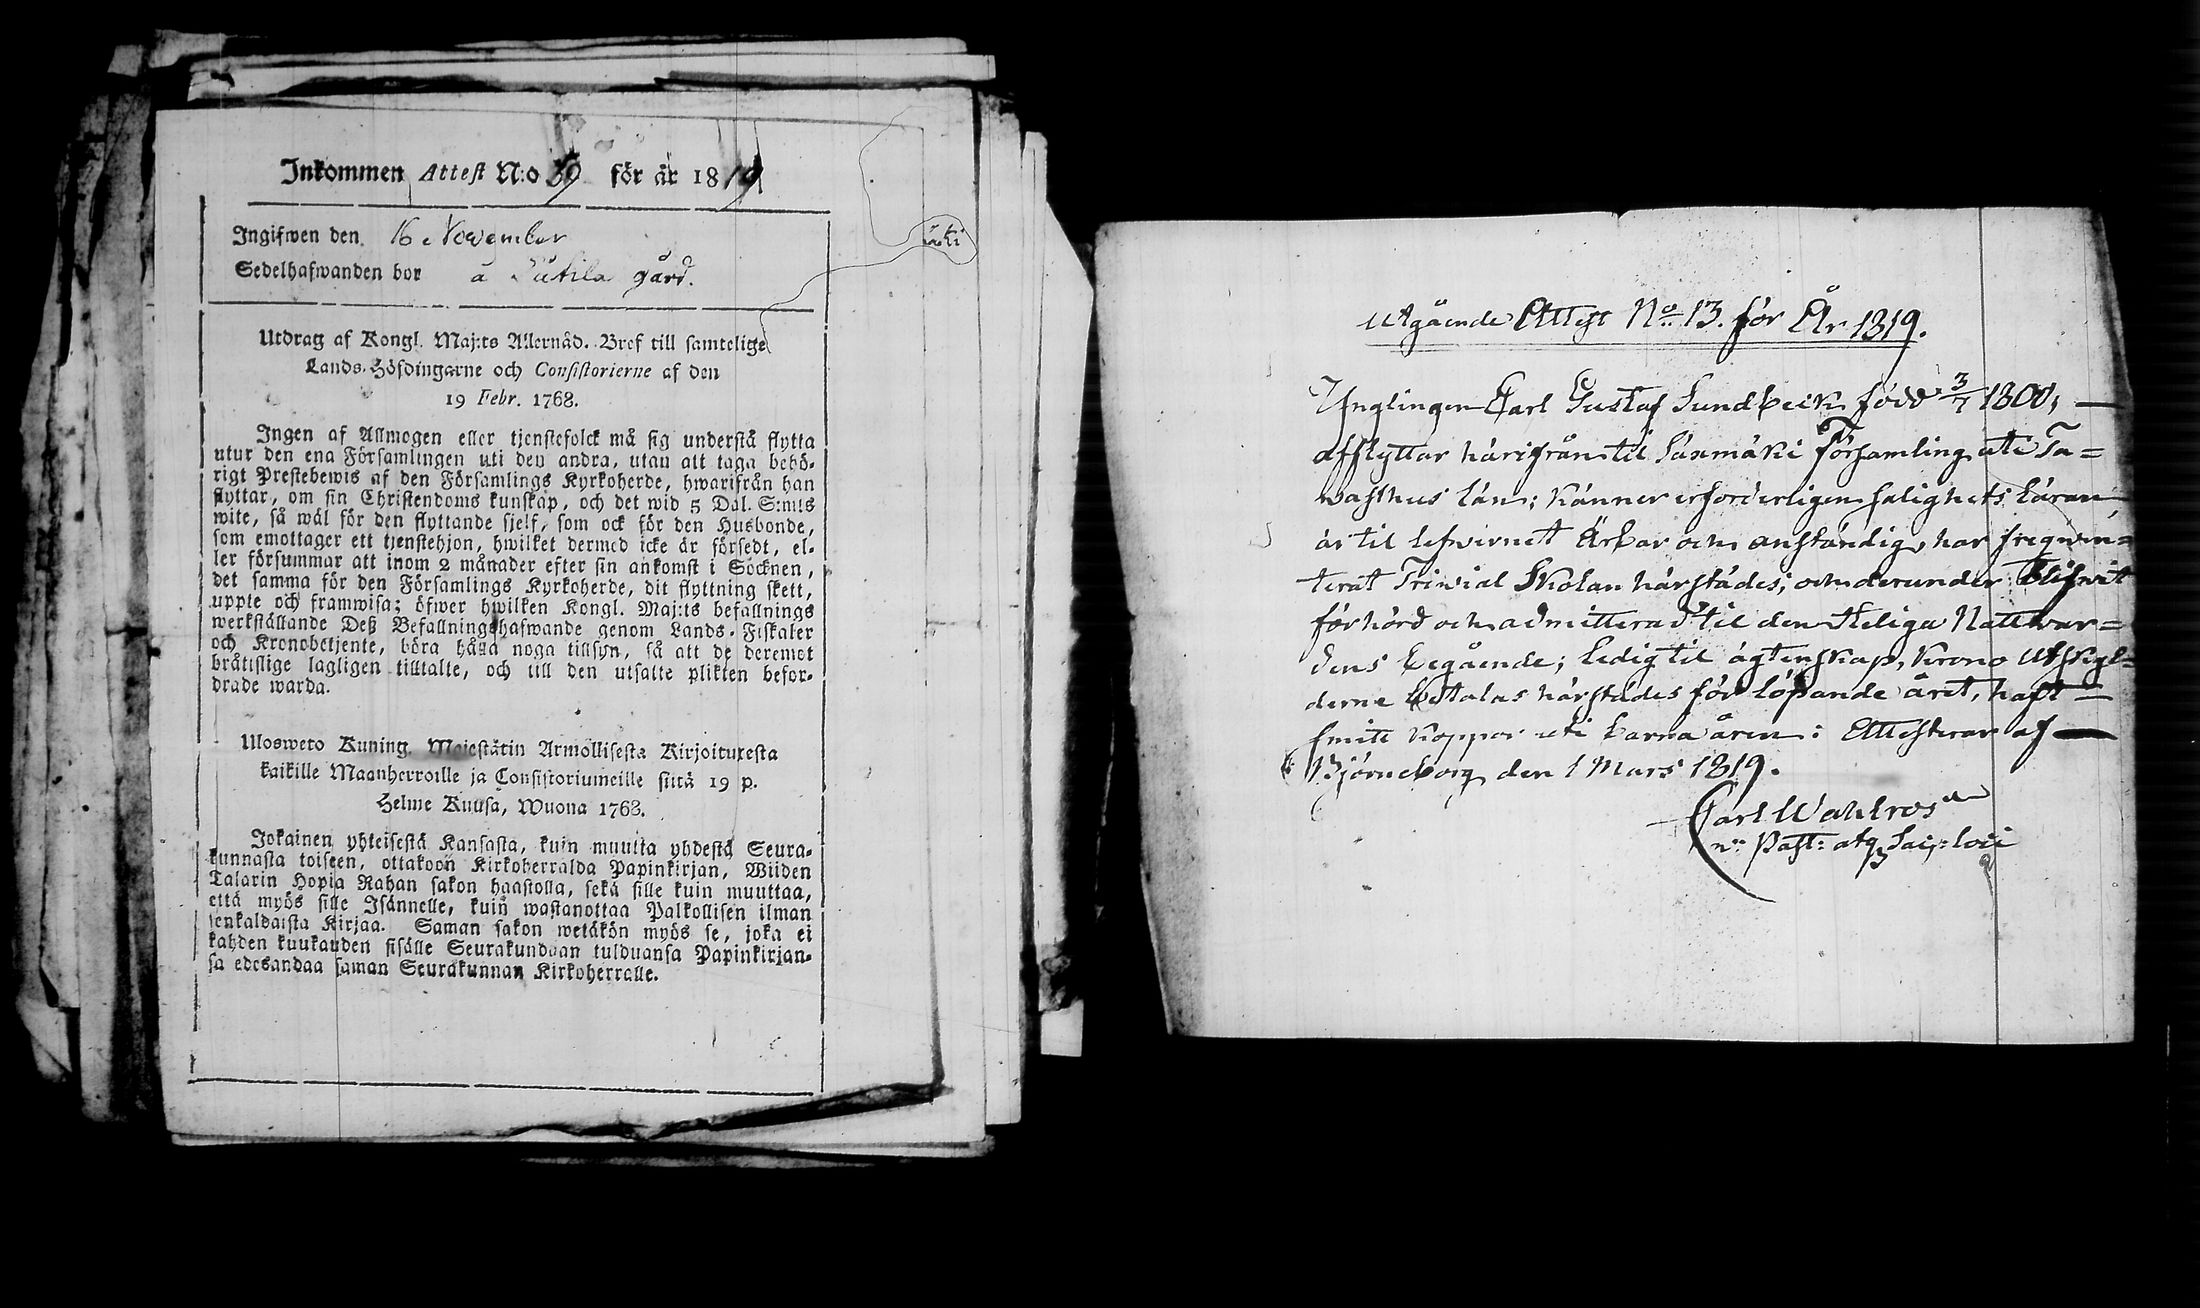 Inkommen Attest N:o 39 för år 1819
Ingifwen den 16 November
Sedelhafwanden bor å gård.
Utdrag af Kongl. Maj:ts Allernåd. Bref till samtelige
Lands-Höfdingarne och Consistorierne af den
19 Febr. 1768.
Ingen af Allmogen eller tjenstefolck må sig understå flytta
utur den ena Församlingen uti den andra, utan att taga behö-
rigt Prestebewis af den Församlings Kyrkoherde, hwarifrån han
flyttar, om sin Christendoms kunskap, och det wid 5 Dal. S:mts
wite, så wäl för den flyttande sjelf, som ock för den Husbonde,
som emottager ett tjenstehjon, hwilket dermed icke är försedt, el-
ler försummar att inom 2 månader efter sin ankomst i Socknen,
det samma för den Församlings Kyrkoherde, dit flyttning skett,
uppte och framwisa; öfwer hwilken Kongl. Maj:ts befallnings
werkställande Deß Befallningshafwande genom Lands-Fiskaler
och Kronobetjente, böra hålla noga tillsyn, så att de deremot
bråtislige lagligen tilltalte, och till den utsatte plikten befor-
drade warda.
Ulosweto Kuning. Majestätin Armollisesta Kirjoituxesta
kaikille Maanherroille ja Consistoriumeille siitä 19 p.
Helme Kuusa, Wuona 1768.
Jokainen yhteisestä Kansasta, kuin muutta yhdestä Seura-
kunnasta toiseen, ottakoon Kirkoherralda Papinkirjan, Wiiden
Talarin Hopia Rahan sakon haastolla, sekä sille kuin muuttaa,
että myös sille Isännelle, kuin wastanottaa Palkollisen ilman
senkaldaista Kirjaa. Saman sakon wetäkön myös se, joka ei
kahden kuukauden sisälle Seurakundaan tulduansa Papinkirjan-
sa edesandaa saman Seurakunnan Kirkoherralle.
äki
Utgående Attest No 13. för År 1819.
Ynglingen Carl Gustaf Sundbeck född 3/7 1800,
afflyttar härifrån til Säxmäki Församling uti Ta=
wasthus län; känner erforderligen salighets läran,
är til lefwernet Ärbar och anständig, har freqwen=
terat Trivial Skolan härstädes, och derunder blifwit
förhörd och admitterad til den Heliga Nattwar=
dens begående; ledig til ägtenskap, Krono Utskyl=
derne betalas härstädes för löpande året, haft
smitt koppor uti barna åren: Attesterar af
Björneborg den 1 Mars 1819.
Carl Wahlroos
Past: atq